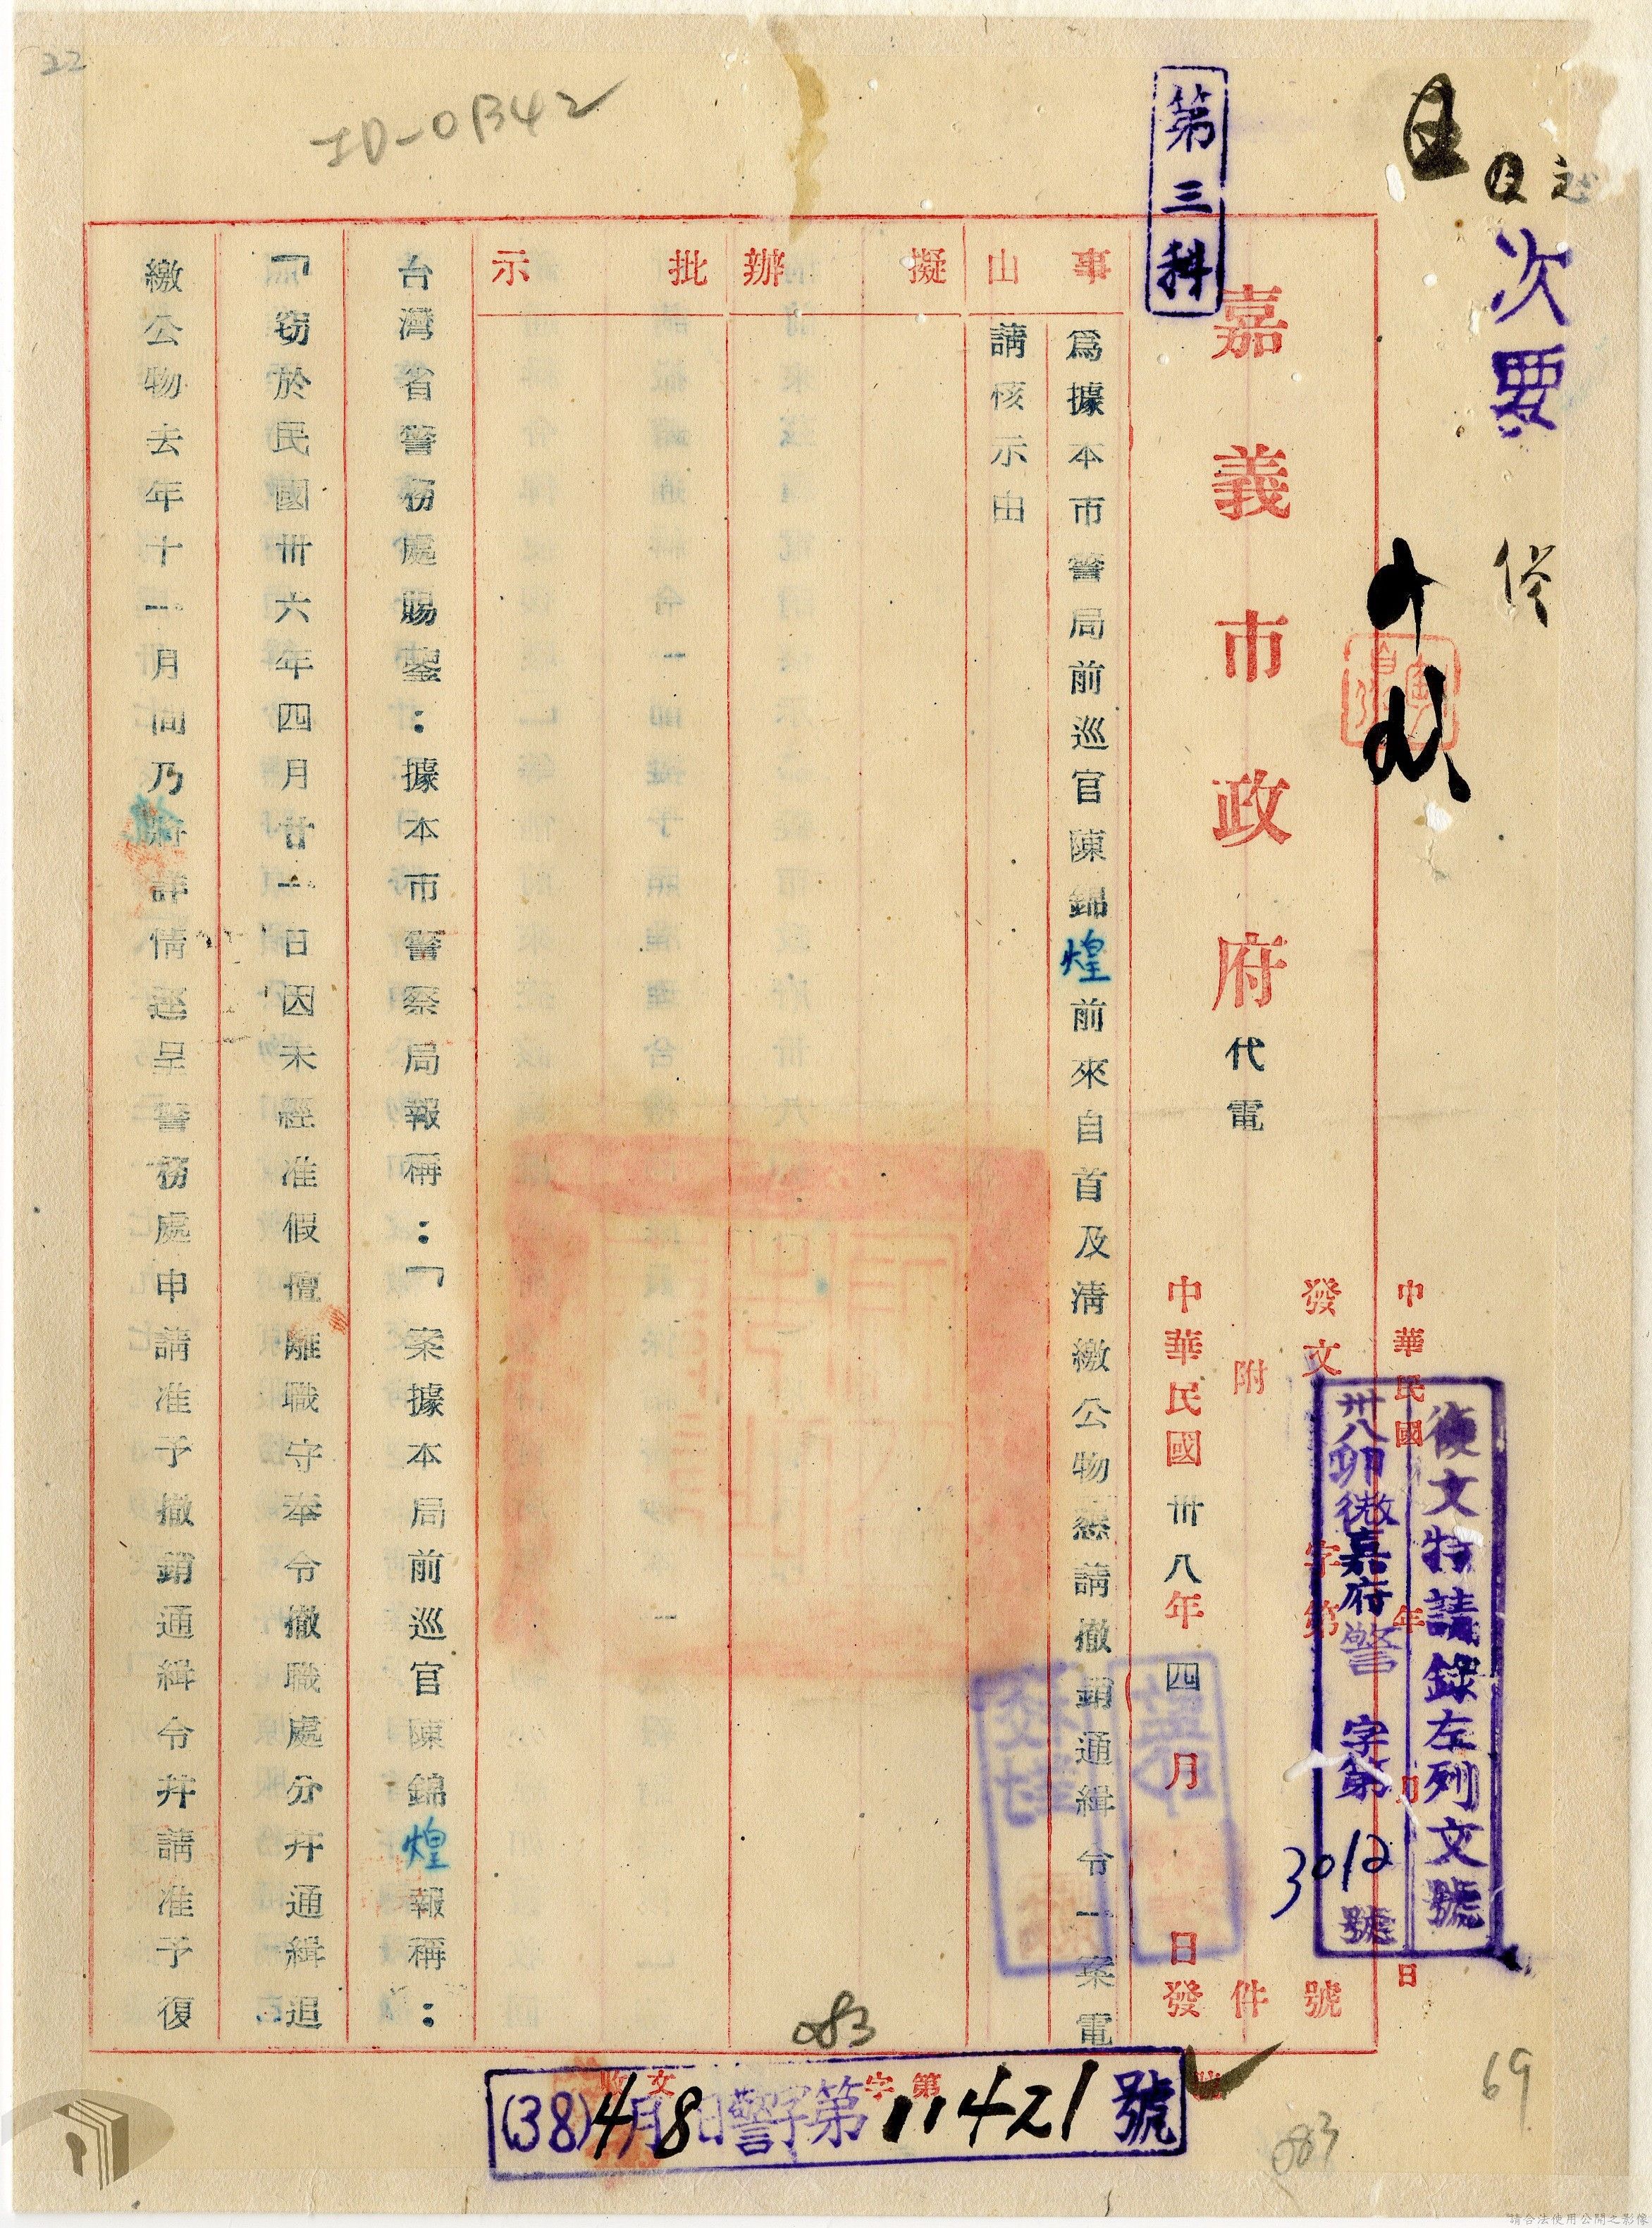 22
ID-0B42
第三科
次要
中華民國 年 月 日
復文特請錄左列文號
卅八卯微嘉府警 字第3012號
發文 字第 號
附 件
嘉義市政府代電
中華民國卅八年四月 日發
事由
為據本市警局前巡官陳錦煌前來自首及清繳公物懇請撤銷通緝令一案電
請核示由
擬辦
批示
台灣省警務處賜鑒：據本市警察局報稱：「案據本局前巡官陳錦煌報稱：
『竊於民國卅六年四月廿一日因未經准假擅離職守奉令撤職處分并通緝追
繳公物去年十一月間乃將詳情逕呈警務處申請准予撤銷通緝令并請准予復
監印
校對
083
收文 字第 號
(38)4月8日警字第11421號
69
083
請合法使用公開之影像